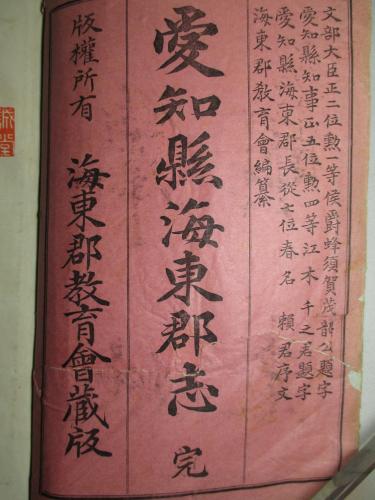 文部大臣正二位勲一等侯爵蜂須賀茂韶公題字
愛知縣知事正五位勲四等江木千之君題字
愛知縣海東郡長從七位春名賴君序文
海東郡教育會編纂
愛知縣海東郡志 完
版權所有 海東郡教育會藏版